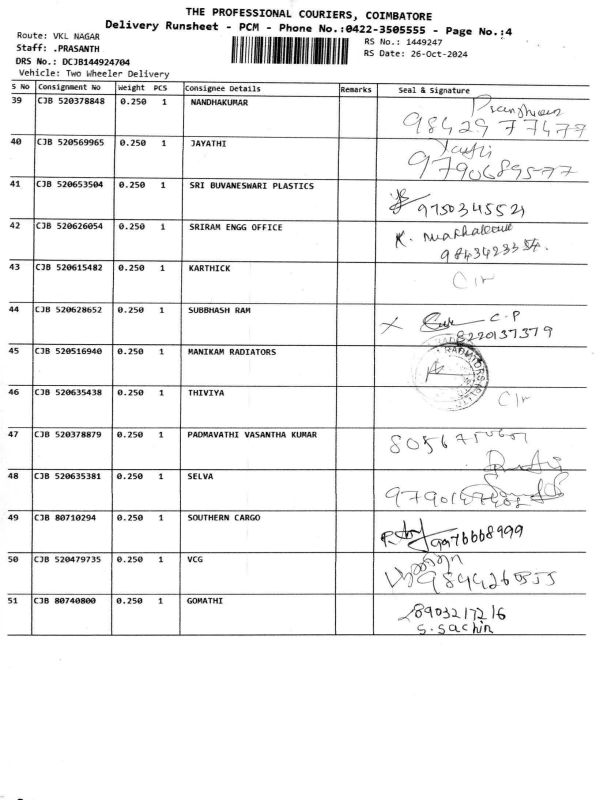 THE PROFESSIONAL COURIERS, COIMBATORE
Delivery Runsheet - PCM - Phone No.:0422-3505555 - Page No.:4
Route: VKL NAGAR
RS No.: 1449247
Staff: .PRASANTH
RS Date: 26-Oct-2024
DRS No.: DCJB144924704
Vehicle: Two Wheeler Delivery
S No Consignment No Weight PCS Consignee Details Remarks Seal & Signature
39 CJB 520378848 0.250 1 NANDHAKUMAR
98429 77477
40 CJB 520569965 0.250 1 JAYATHI
9790689577
41 CJB 520653504 0.250 1 SRI BUVANESWARI PLASTICS
9750345521
42 CJB 520626054 0.250 1 SRIRAM ENGG OFFICE K.
9843423354.
43 CJB 520615482 0.250 1 KARTHICK Clr
44 CJB 520628652 0.250 1 SUBBHASH RAM X C.P
8220137379
45 CJB 520516940 0.250 1 MANIKAM RADIATORS
46 CJB 520635438 0.250 1 THIVIYA Clr
47 CJB 520378879 0.250 1 PADMAVATHI VASANTHA KUMAR
48 CJB 520635381 0.250 1 SELVA
49 CJB 80710294 0.250 1 SOUTHERN CARGO
9976668999
50 CJB 520479735 0.250 1 VCG
51 CJB 80740800 0.250 1 GOMATHI 8903217216
S. Sachin